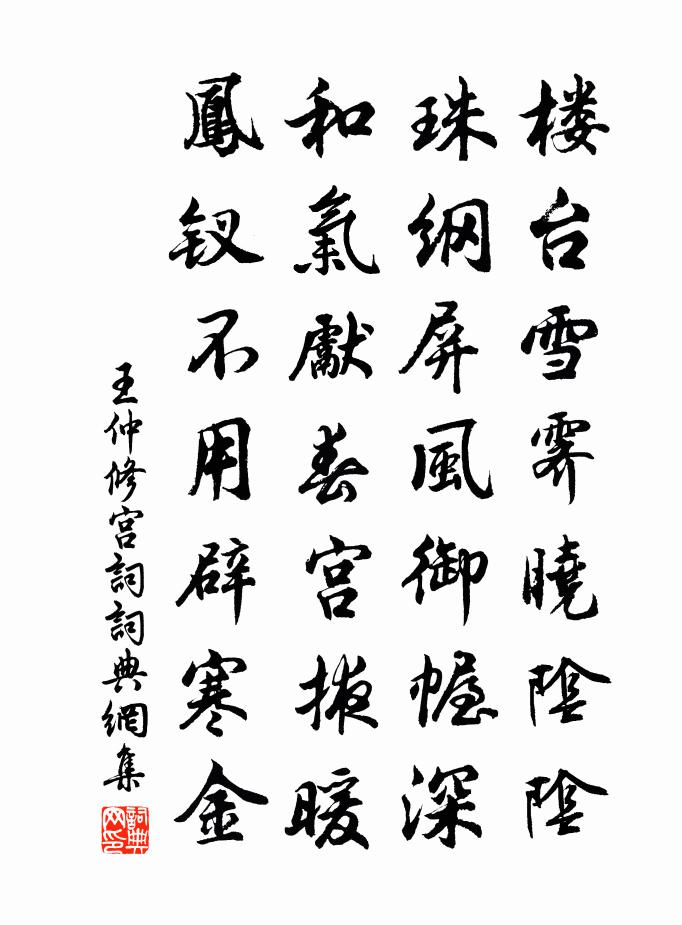 楼台雪霁曉陰陰
珠網屏風御幄深
和氣獻春宫掖暖
鳳钗不用辟寒金
王仲修宫詞詞典網集
詞典
网印